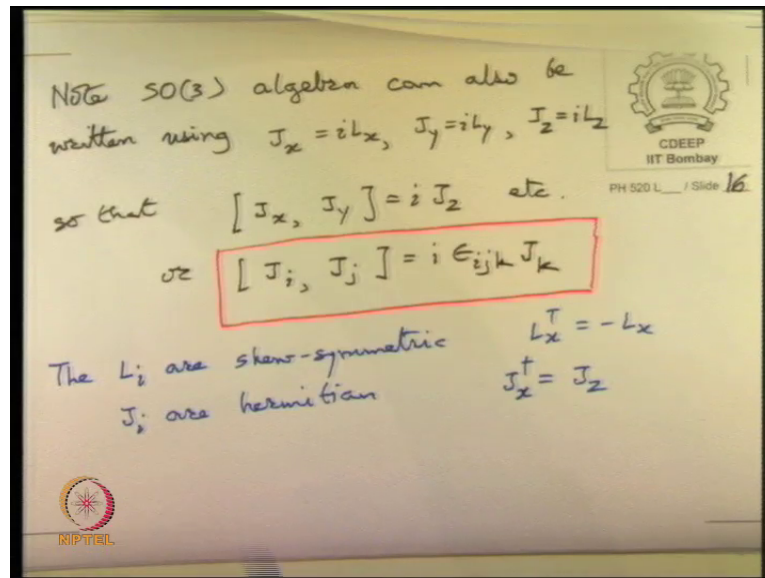 Note SO(3) algebra can also be
written using J_x = iL_x, J_y = iL_y, J_z = iL_z
CDEEP
IIT Bombay
PH 520 L___ / Slide 16
so that [J_x, J_y] = i J_z etc.
or [J_i, J_j] = i ϵ_{ijk} J_k
The L_i are skew-symmetric L_x^T = -L_x
J_i are hermitian J_x^† = J_z
NPTEL